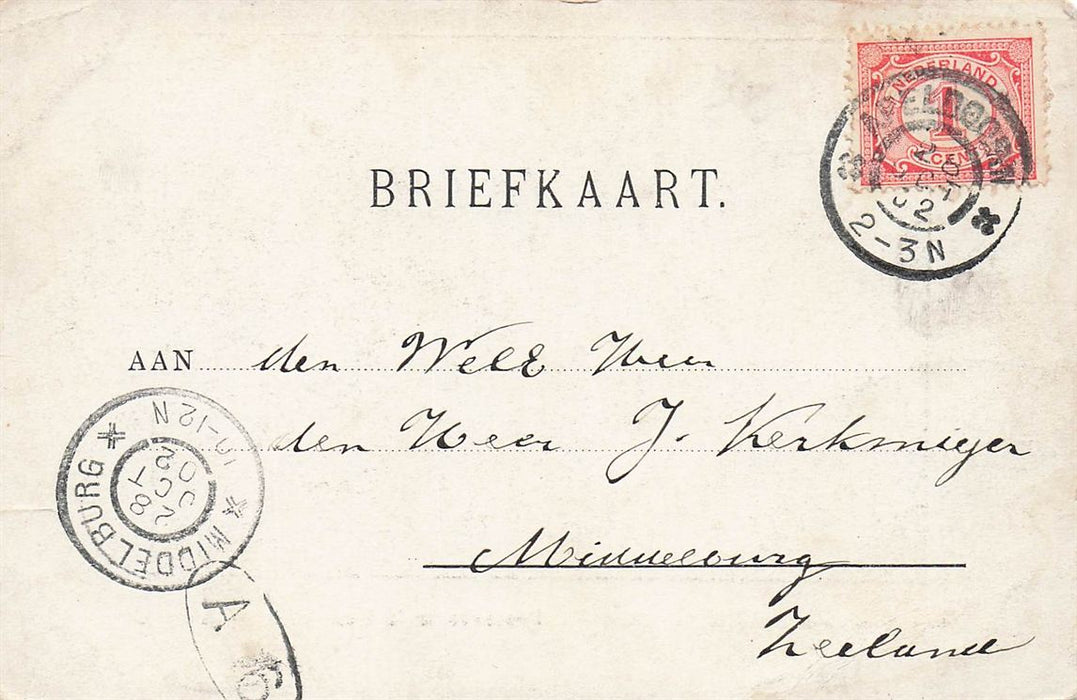 NEDERLAND
1
CENT
2-3N
BRIEFKAART.
AAN den WelE Heer
den Heer J. Kerkmeijer
Middelburg
Zeeland
MIDDELBURG
10-12N
A